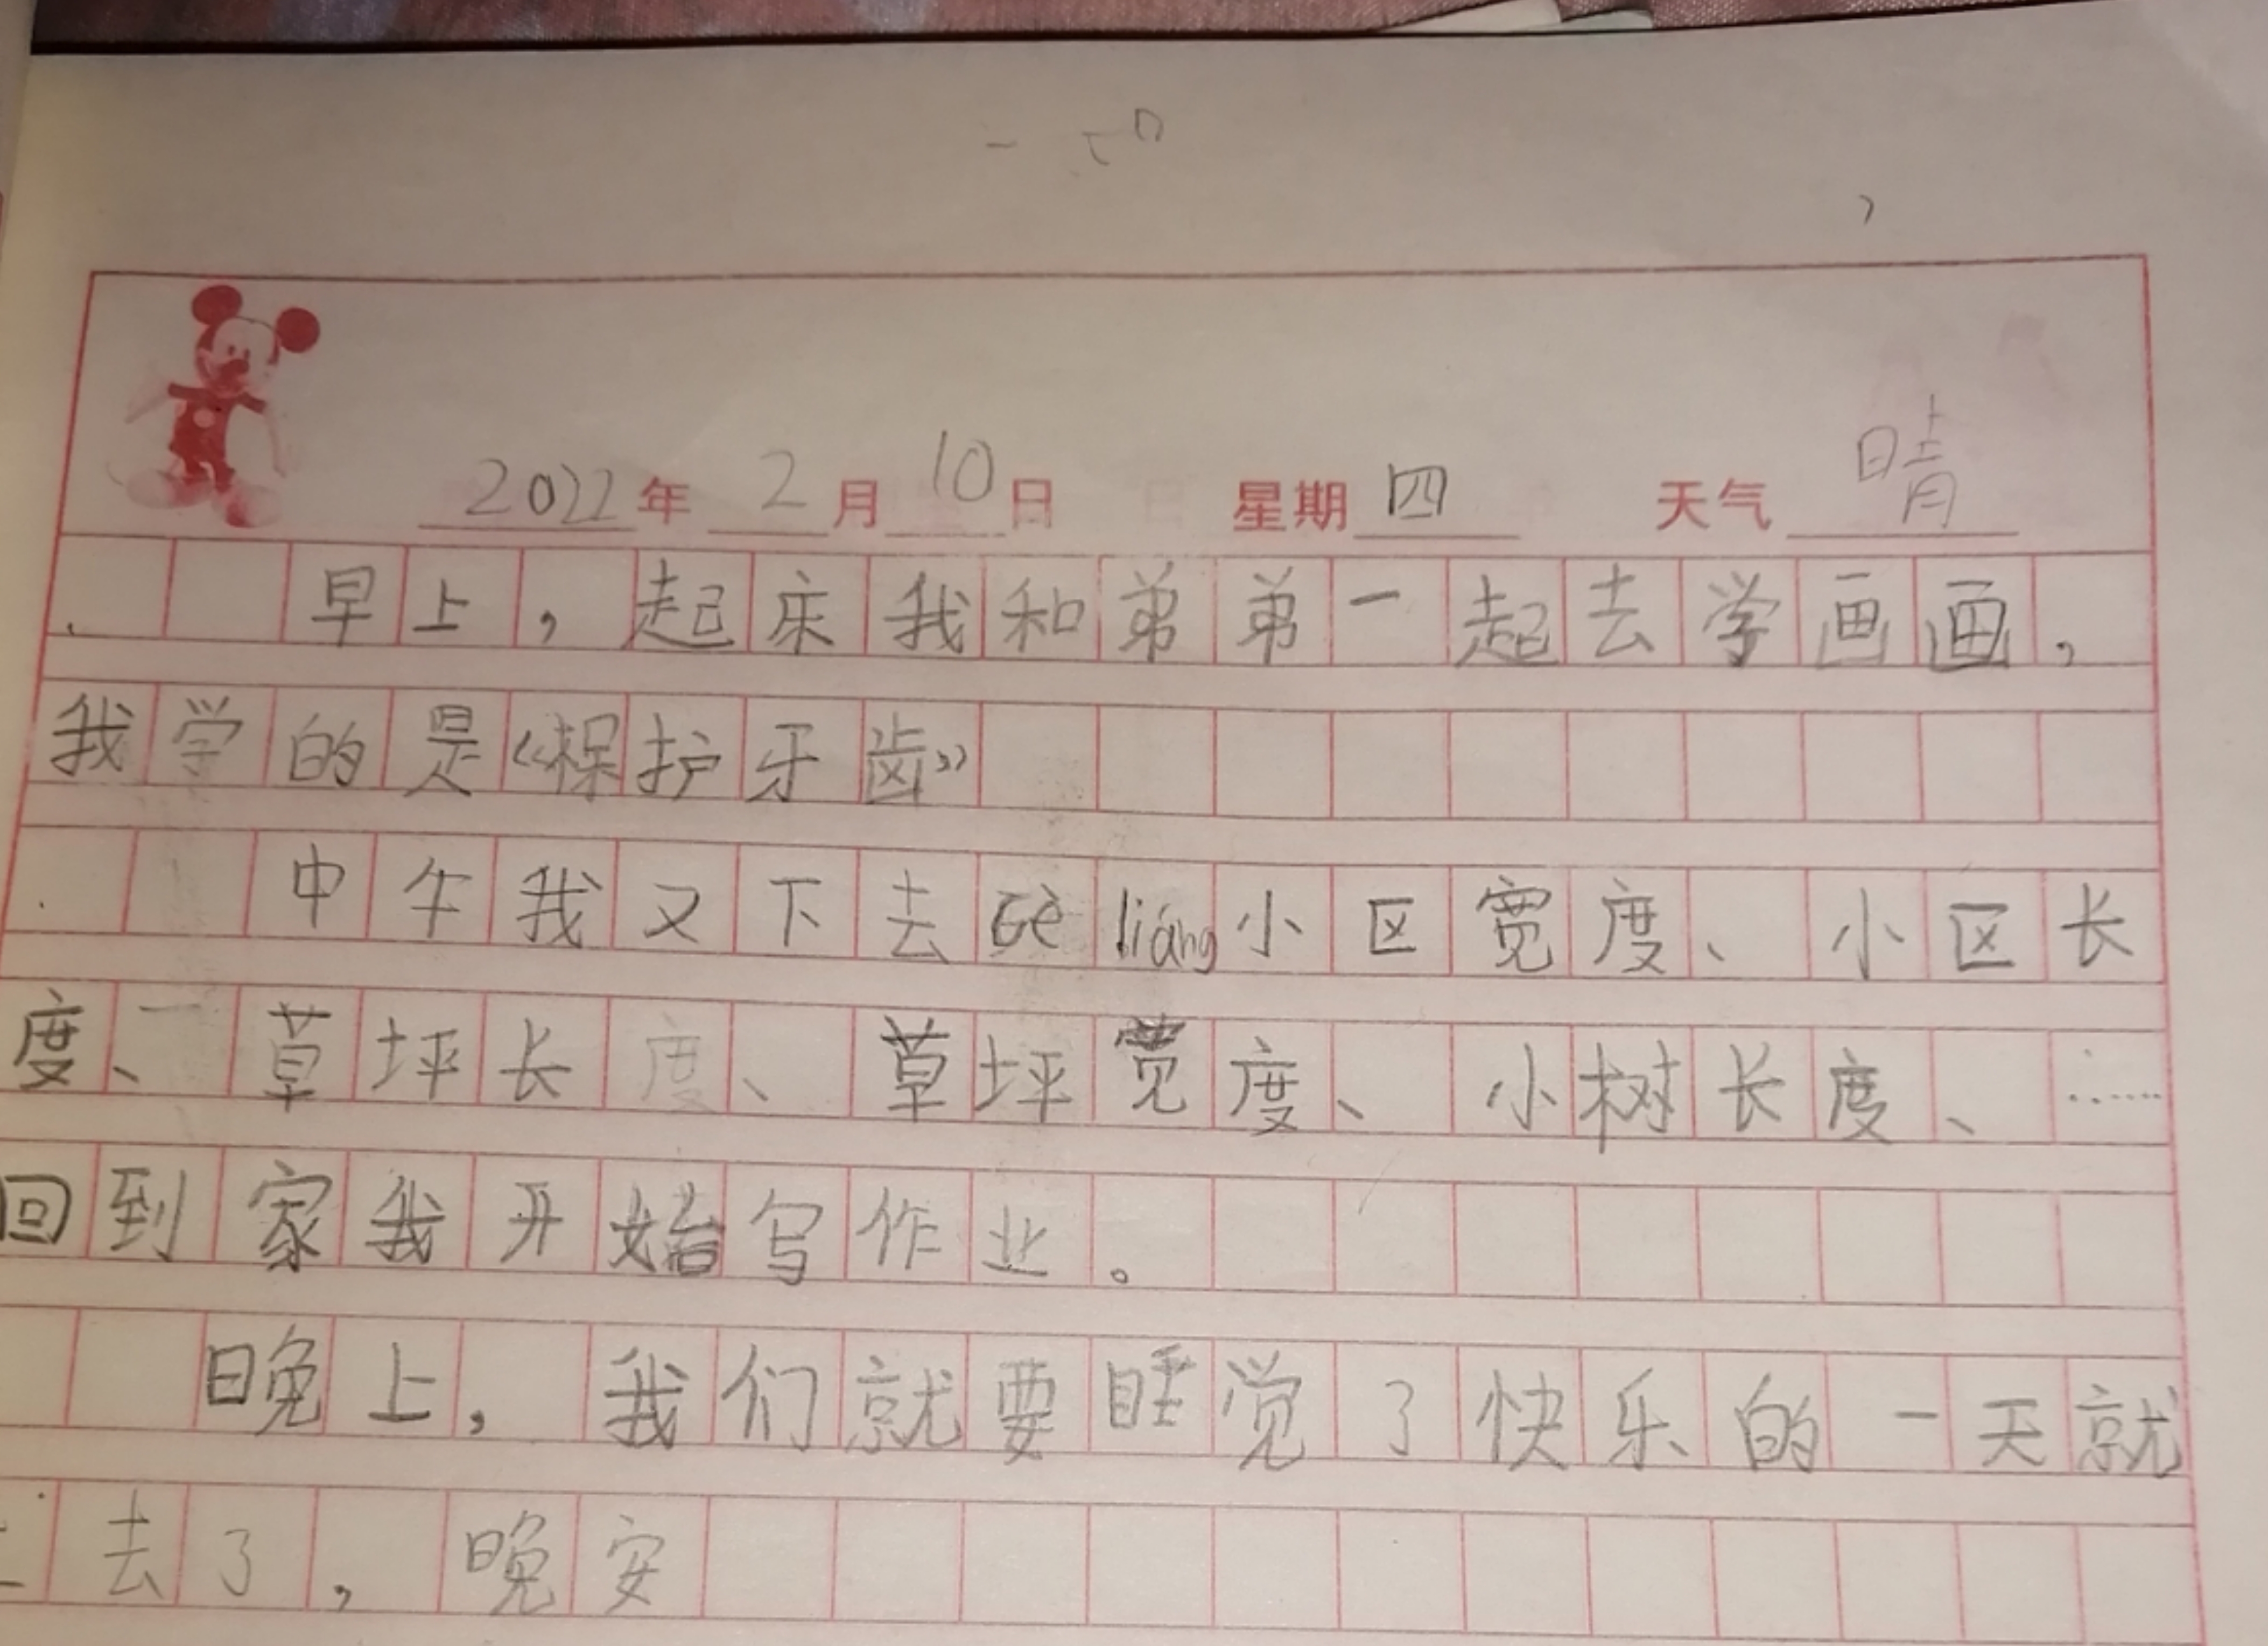 2022年 2月10日 星期四 天气 晴
早上，起床我和弟弟一起去学画画，
我学的是《保护牙齿》
中午我又下去cè liáng小区宽度、小区长
度、草坪长度、草坪宽度、小树长度、……
回到家我开始写作业。
晚上，我们就要睡觉了快乐的一天就
去了，晚安